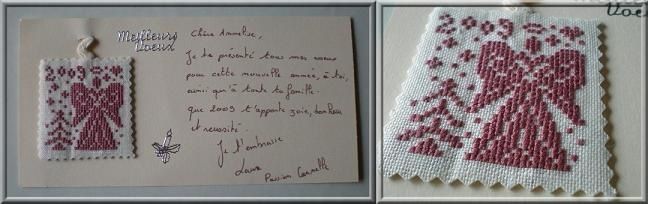 Meilleurs
Voeux
2009
Chère Annelise,
Je te présente tous mes voeux
pour cette nouvelle année, à toi,
ainsi qu'à toute ta famille.
que 2009 t'apporte joie, bonheur
et réussite.
Je t'embrasse
Laura
Passion Cannelle
2009
Voeux